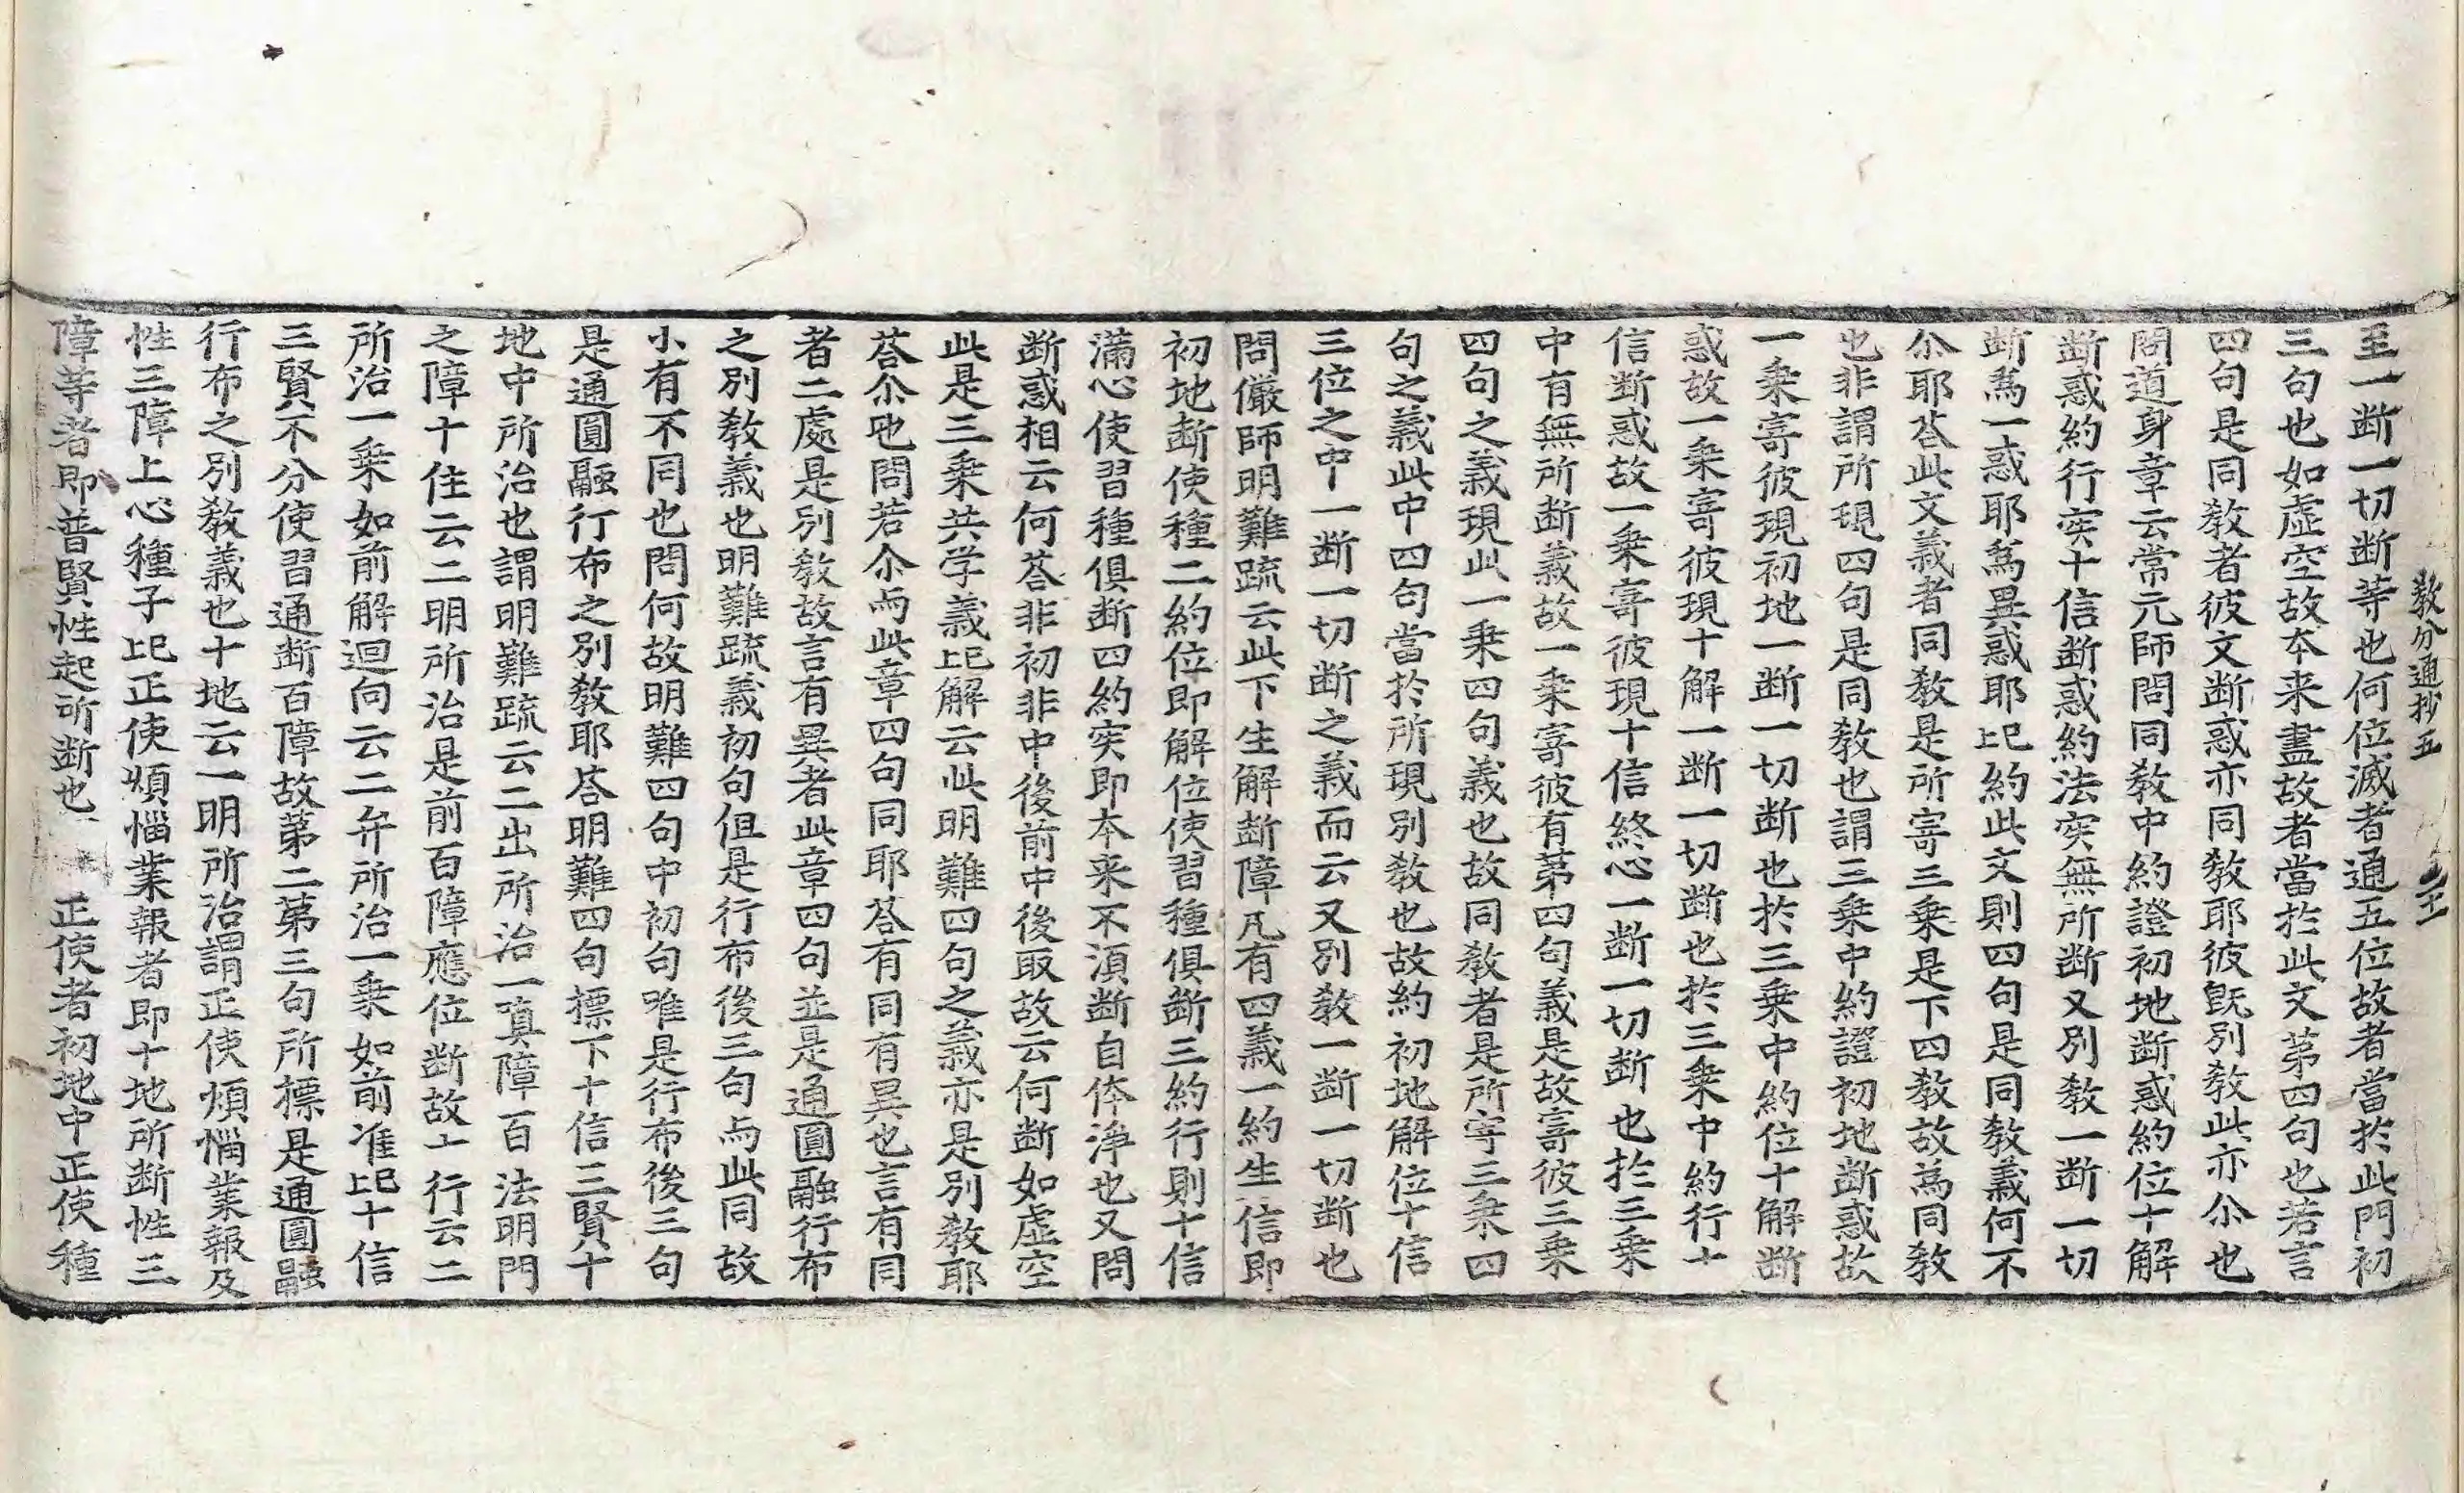 教分通抄五
至一断一切断等也何位滅者通五位故者當扵此門初
三句也如虚空故本来盡故者當扵此文第四句也若言
四句是同教者彼文断惑亦同教耶彼旣別教此亦尒也
問道身章云常元師問同教中約證初地断惑約位十解
断惑約行宲十信断惑約法宲無所断又別教一断一切
断爲一惑耶爲異惑耶䛊約此文則四句是同教義何不
尒耶荅此文義者同教是所寄三乗是下四教故爲同教
也非謂所現四句是同教也謂三乗中約證初地断惑故
一乗寄彼現初地一断一切断也扵三乗中約位十解断
惑故一乗寄彼現十解一断一切断也扵三乗中約行十
信断惑故一乗寄彼現十信終心一断一切断也扵三乗
中有無所断義故一乗寄彼有第四句義是故寄彼三乗
四句之義現此一乗四句義也故同教者是所寄三乗四
句之義此中四句當扵所現別教也故約初地解位十信
三位之中一断一切断之義而云又別教一断一切断也
問儼師明難䟽云此下生解断障凡有四義一約生信即
初地断使種二約位即解位使習種俱断三約行則十信
滿心使習種俱断四約宲即本来不湏断自体浄也又問
断惑相云何荅非初非中後前中後取故云何断如虚空
此是三乗共学義䛊解云此明難四句之義亦是別教耶
荅尒也問若尒与此章四句同耶荅有同有異也言有同
者二處是別教故言有異者此章四句並是通圓融行布
之別教義也明難䟽義初句但是行布後三句与此同故
小有不同也問何故明難四句中初句唯是行布後三句
是通圓融行布之別教耶荅明難四句標下十信三賢十
地中所治也謂明難䟽云二出所治一真障百法明門
之障十住云二明所治是前百障應位断故十行云二
所治一乗如前解迴向云二弁所治一乗如前准䛊十信
三賢不分使習通断百障故第二第三句所標是通圓融
行布之別教義也十地云一明所治謂正使煩惱業報及
性三障上心種子䛊正使煩惱業報者即十地所断性三
障等者即普賢性起所断也 正使者初地中正使種